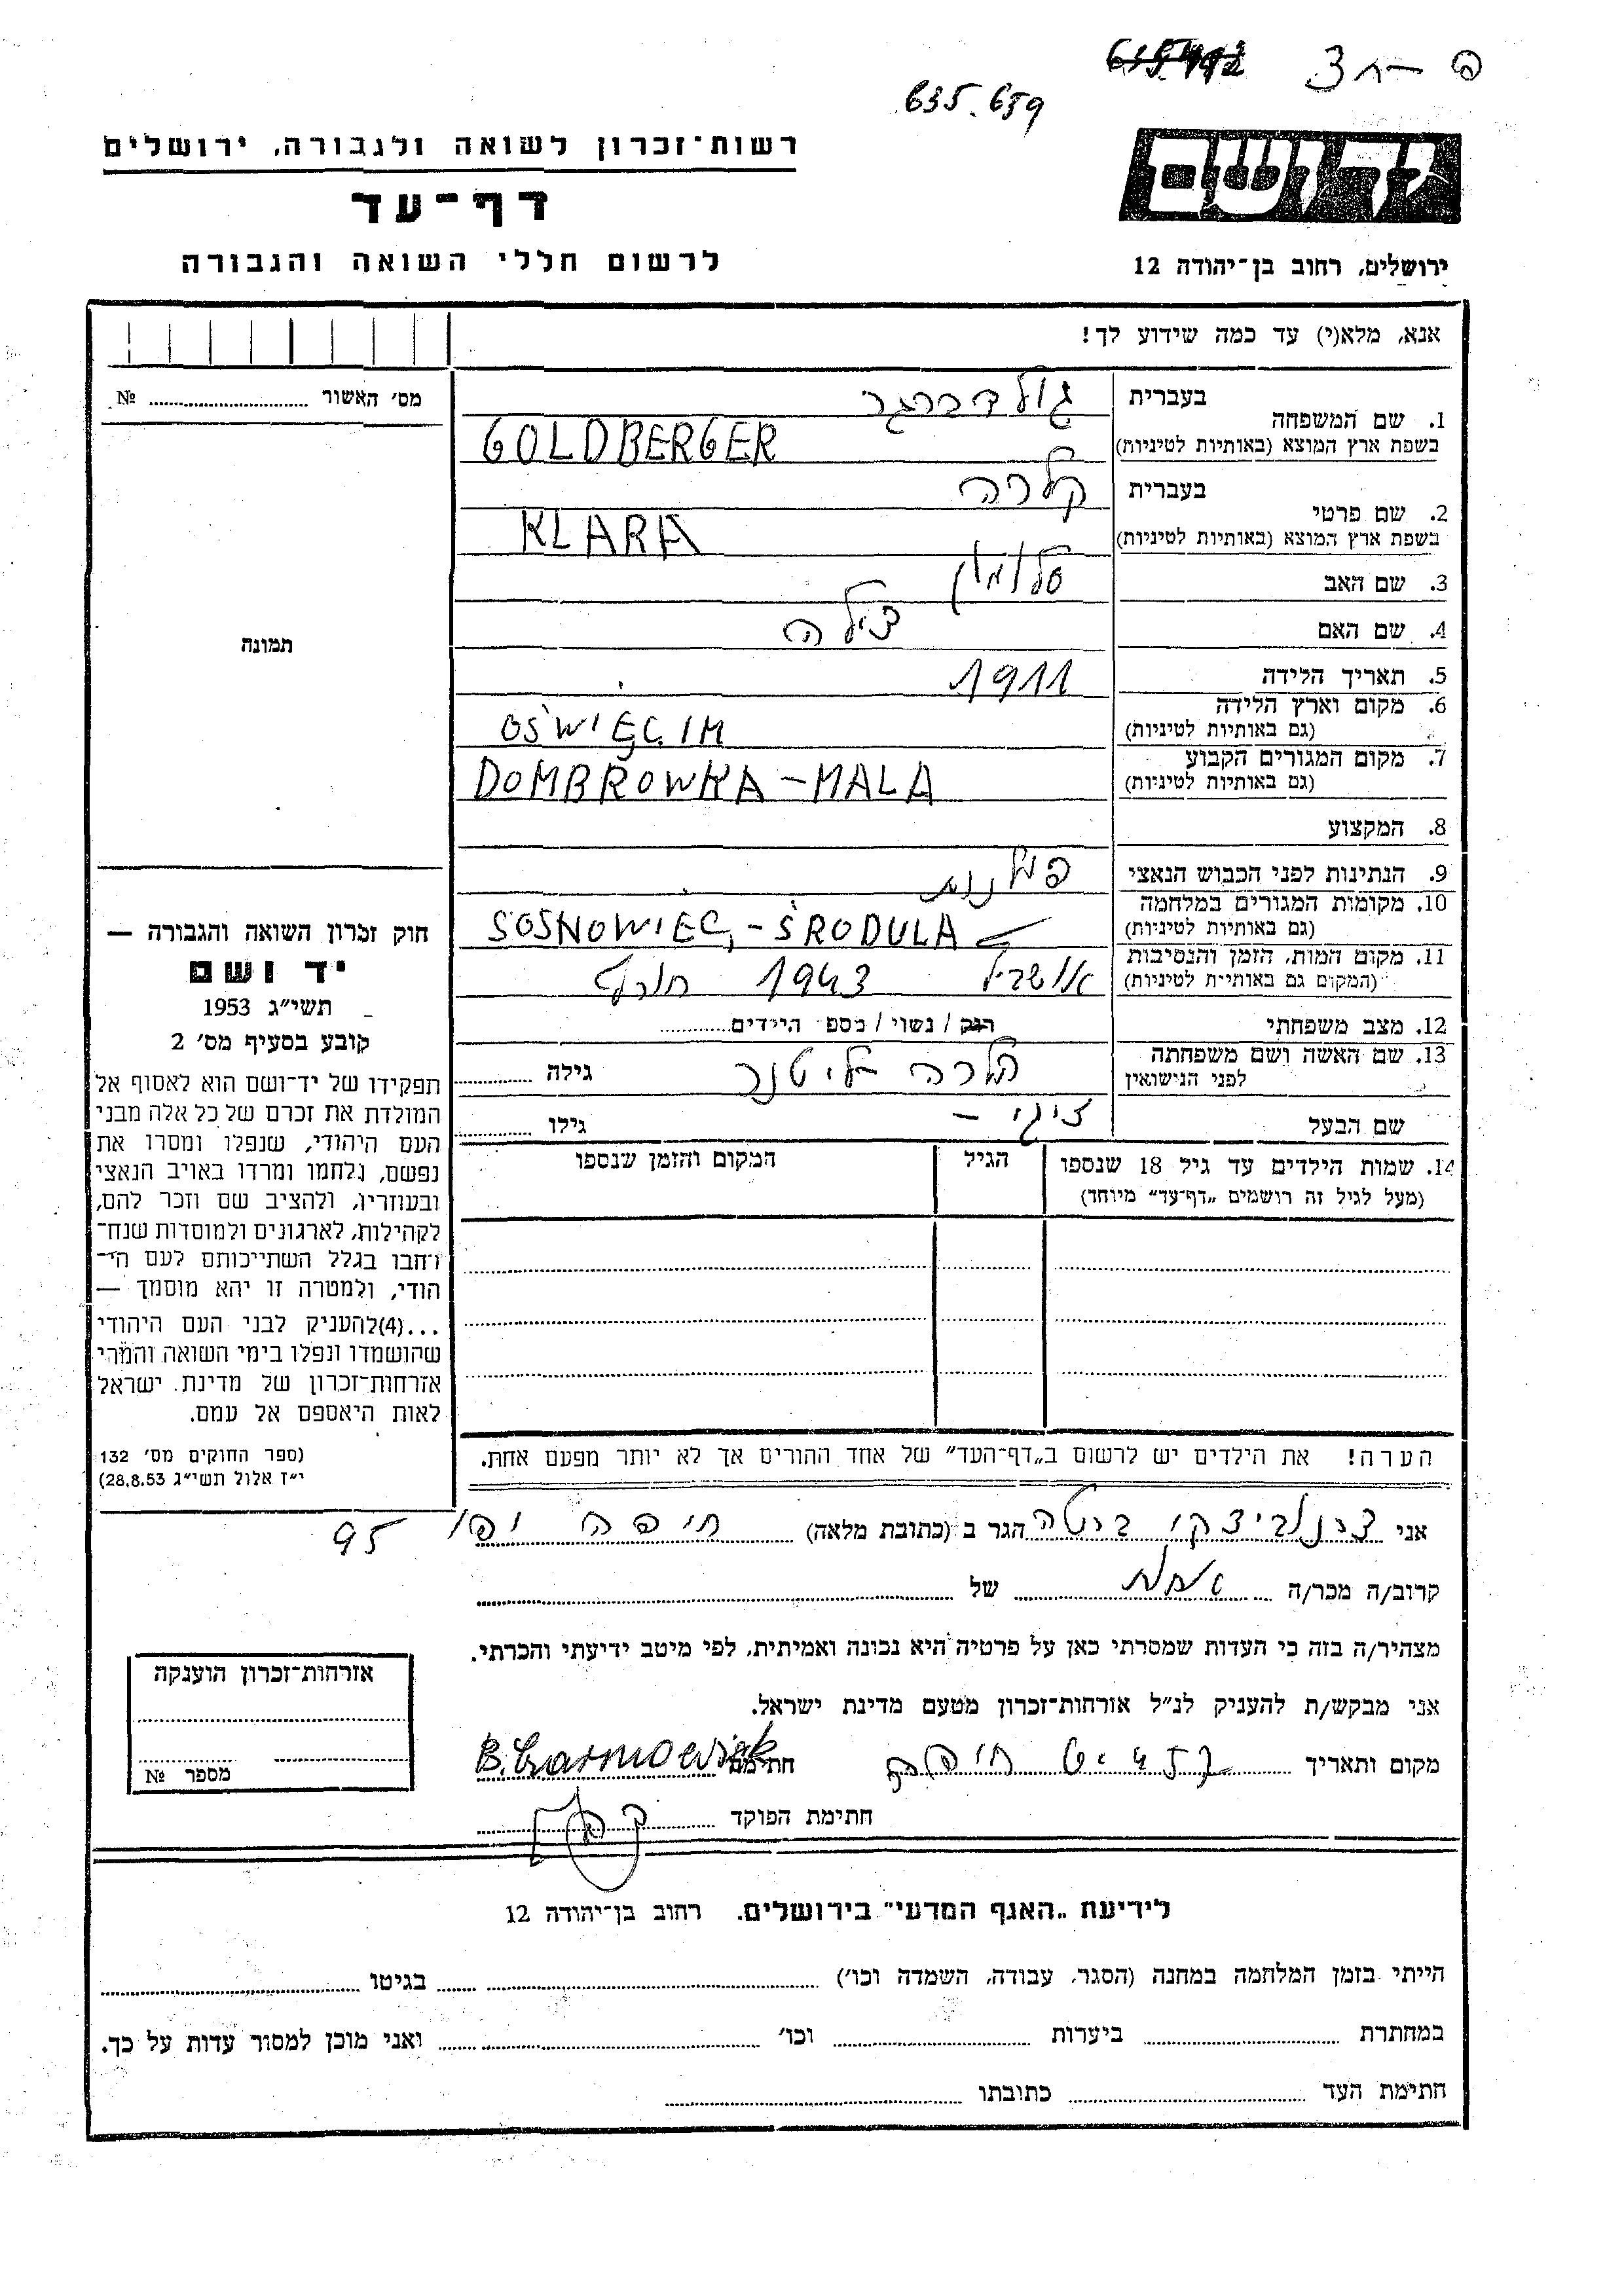 פ – ח 3
635.659
יד ושם
רשות־זכרון לשואה ולגבורה, ירושלים
דף־עד
לרשום חללי השואה והגבורה
ירושלים, רחוב בן־יהודה 12
אנא, מלא(י) עד כמה שידוע לך!
מס׳ האשור № ........
1. שם המשפחה בעברית גולדברגר
בשפת ארץ המוצא (באותיות לטיניות) GOLDBERGER
2. שם פרטי בעברית קלרה
בשפת ארץ המוצא (באותיות לטיניות) KLARA
3. שם האב סלומון
4. שם האם צילה
תמונה
5. תאריך הלידה 1911
6. מקום וארץ הלידה (גם באותיות לטיניות) OŚWIĘCIM
7. מקום המגורים הקבוע (גם באותיות לטיניות) DOMBROWKA-MALA
8. המקצוע
9. הנתינות לפני הכבוש הנאצי פולנית
10. מקומות המגורים במלחמה (גם באותיות לטיניות) SOSNOWIEC,-ŚRODULA
11. מקום המות, הזמן והנסיבות (המקום גם באותיות לטיניות) אושביץ 1943 חורף
12. מצב משפחתי רווק / נשוי / מספר הילדים........
13. שם האשה ושם משפחתה לפני הנישואין קלרה גילה ........
שם הבעל זיגי – גילו ........
14. שמות הילדים עד גיל 18 שנספו (מעל לגיל זה רושמים „דף־עד״ מיוחד)
הגיל
המקום והזמן שנספו
חוק זכרון השואה והגבורה —
יד ושם
תשי״ג 1953
קובע בסעיף מס׳ 2
תפקידו של יד־ושם הוא לאסוף אל
המולדת את זכרם של כל אלה מבני
העם היהודי, שנפלו ומסרו את
נפשם, נלחמו ומרדו באויב הנאצי
ובעוזריו, ולהציב שם וזכר להם,
לקהילות, לארגונים ולמוסדות שנח־
רחבו בגלל השתייכותם לעם הי־
הודי, ולמטרה זו יהא מוסמך —
...(4)להעניק לבני העם היהודי
שהושמדו ונפלו בימי השואה והמרי
אזרחות־זכרון של מדינת ישראל
לאות היאספם אל עמם.
(ספר החוקים מס׳ 132
י״ז אלול תשי״ג 28.8.53)
הערה! את הילדים יש לרשום ב„דף־העד״ של אחד ההורים אך לא יותר מפעם אחת.
אני ברטה הגר ב (כתובת מלאה) חיפה יפו 95
קרוב/ה מכר/ה אחות של ........
מצהיר/ה בזה כי העדות שמסרתי כאן על פרטיה היא נכונה ואמיתית, לפי מיטב ידיעתי והכרתי.
אני מבקש/ת להעניק לנ״ל אזרחות־זכרון מטעם מדינת ישראל.
מקום ותאריך חיפה חתימה
חתימת הפוקד
אזרחות־זכרון הוענקה
מספר №
לידיעת „האגף המדעי״ בירושלים. רחוב בן־יהודה 12
הייתי בזמן המלחמה במחנה (הסגר, עבודה, השמדה וכו׳) ........ בגיטו ........
במחתרת ........ ביערות ........ וכו׳ ........ ואני מוכן למסור עדות על כך.
חתימת העד ........ כתובתו ........